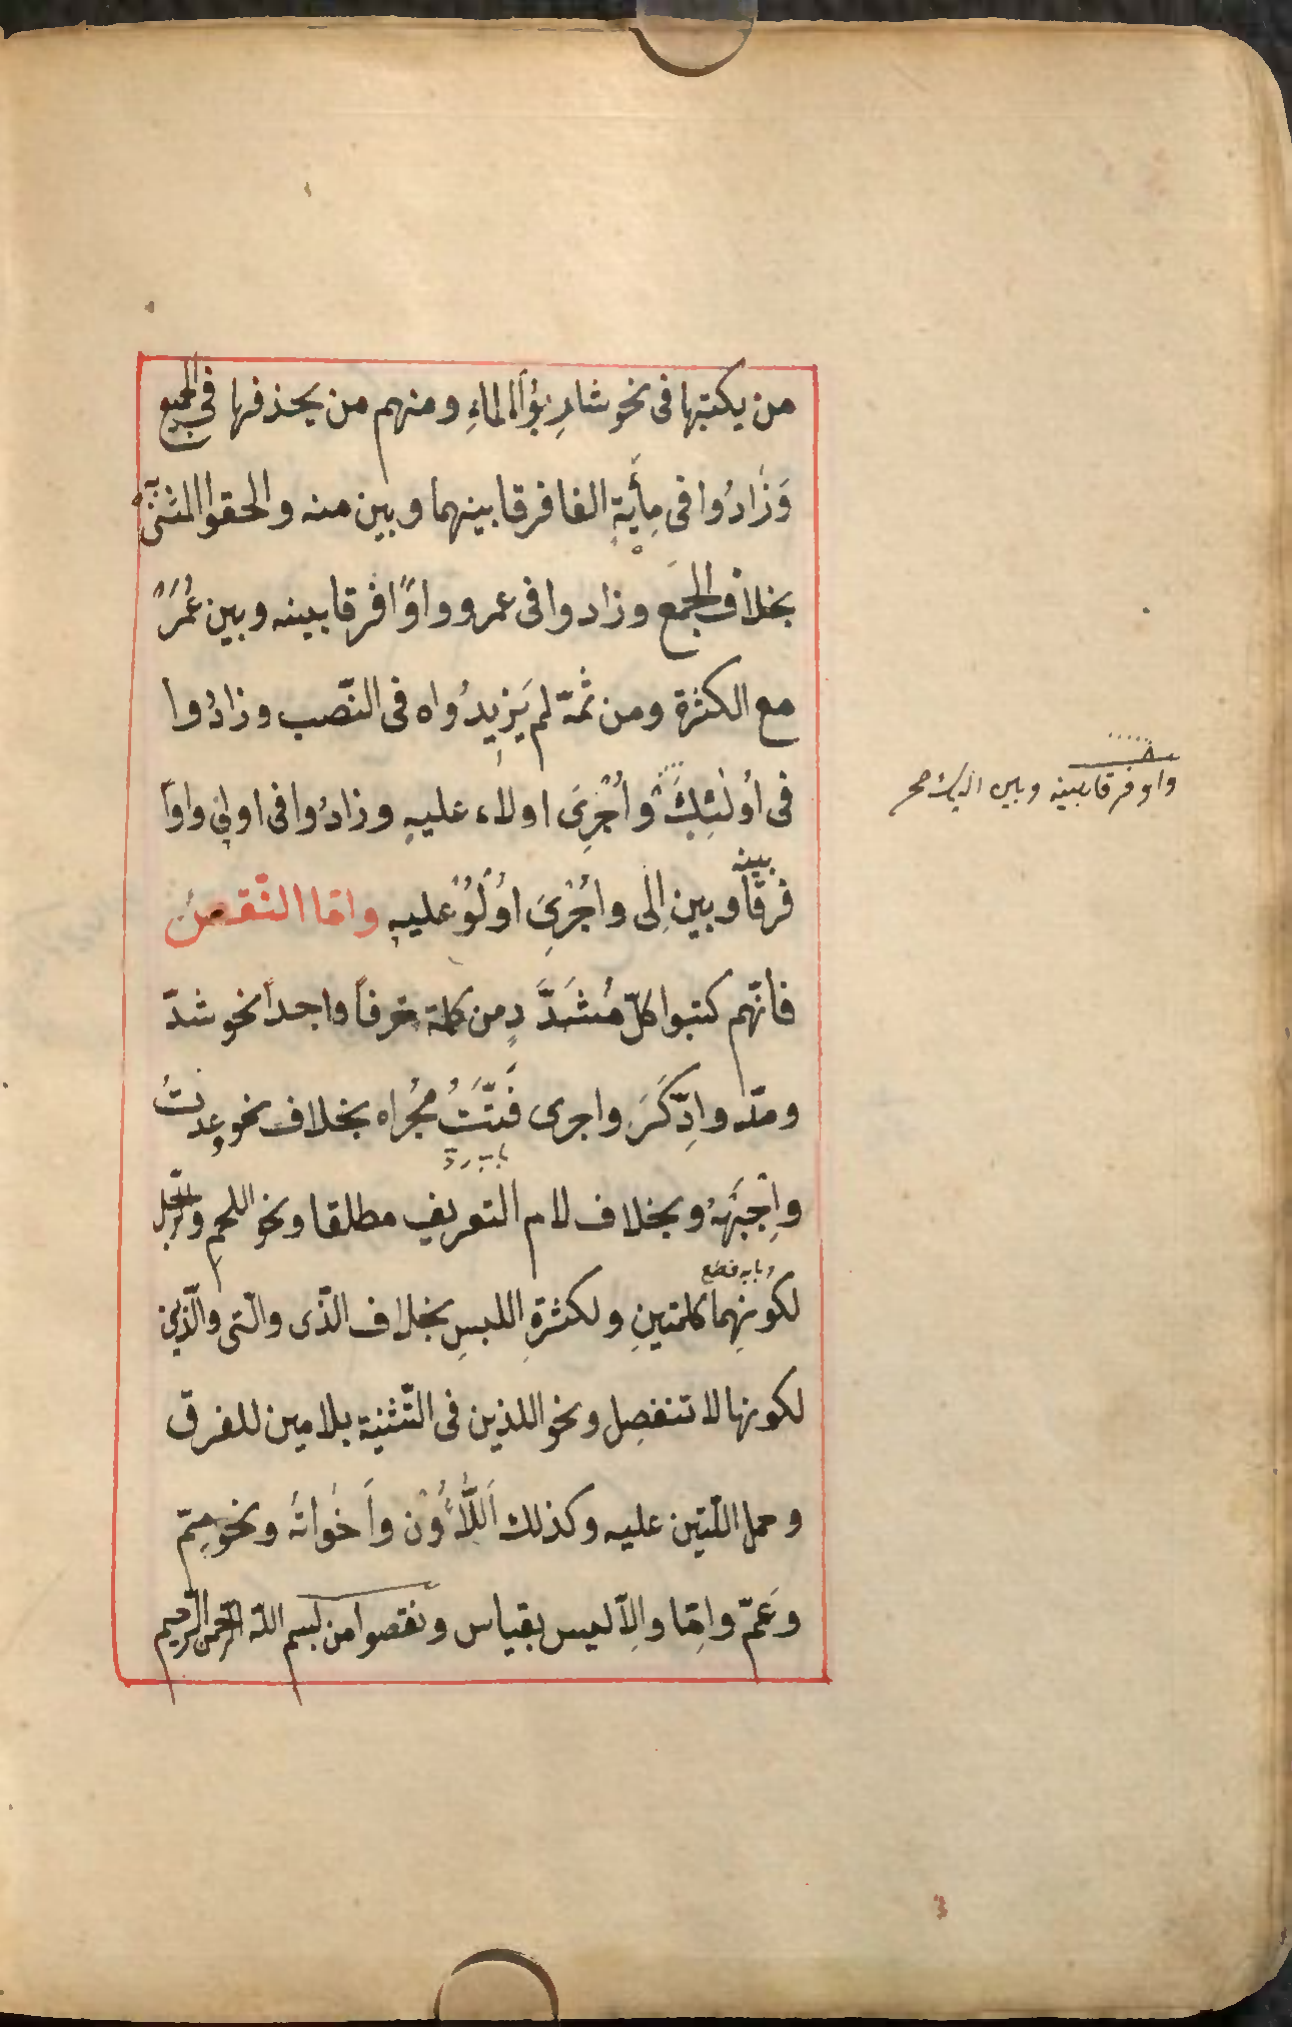 من يكتبها فى نحو شاربوا الماءِ ومنهم من يحذفها فى الجميع
وَزَادُوا فى مِأَيةٍ الفا فرقا بينهما وبين منه والحقوا المثنّى
بخلاف الجمَع وزادوا فى عمرو واوًا فرقا بينه وبين عُمَرَ
مع الكثرة ومن ثمّة لم يَزِيدُواه فى النّصب وزادُوا
فى أولٰئِكَ وأُجْرِىَ اولاء عليهِ وزادُوا فى اولى واوًا
فرقًا بينه وبين اِلى واُجْرِىَ اوُلُوُ عليهِ وامّا النّقص
فانّهم كتبوا كلّ مُشَدَّدٍ من كلمة حرفاً واحداً نحو شدّ
ومدّ وادِّكَرَ واجرى قَتَّتُ مُجراه بخلاف نحو وعدتُ
واِجْبَهْهُ وبخلاف لام التعريف مطلقا ونحو اللحم والرّجل
لكونِهما كلمتينِ ولكثرةِ اللبسِ بخلاف الّذى والّتى والّذين
لكونها لا تنفصِل ونحو اللذين فى التّثنية بلامين للفرق
وحمل اللّتين عليه وكذلك اَللَّاؤُن واَخَواتُه ونحو مِمّ
وعَمّ وامّا والاّ ليس بقياس ونقصوا من بسم اللّه الرّحمن الرّحيم
واو فرقا بينه وبين اليك صح